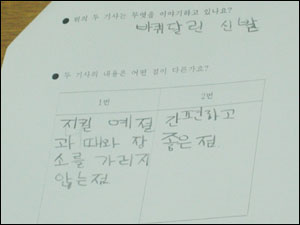 ● 위의 두 기사는 무엇을 이야기하고 있나요?
바퀴달린 신발
● 두 기사의 내용은 어떤 점이 다른가요?
1번 2번
지킬 예절 간편하고
과 때와 장 좋은점.
소를 가리지
않는점